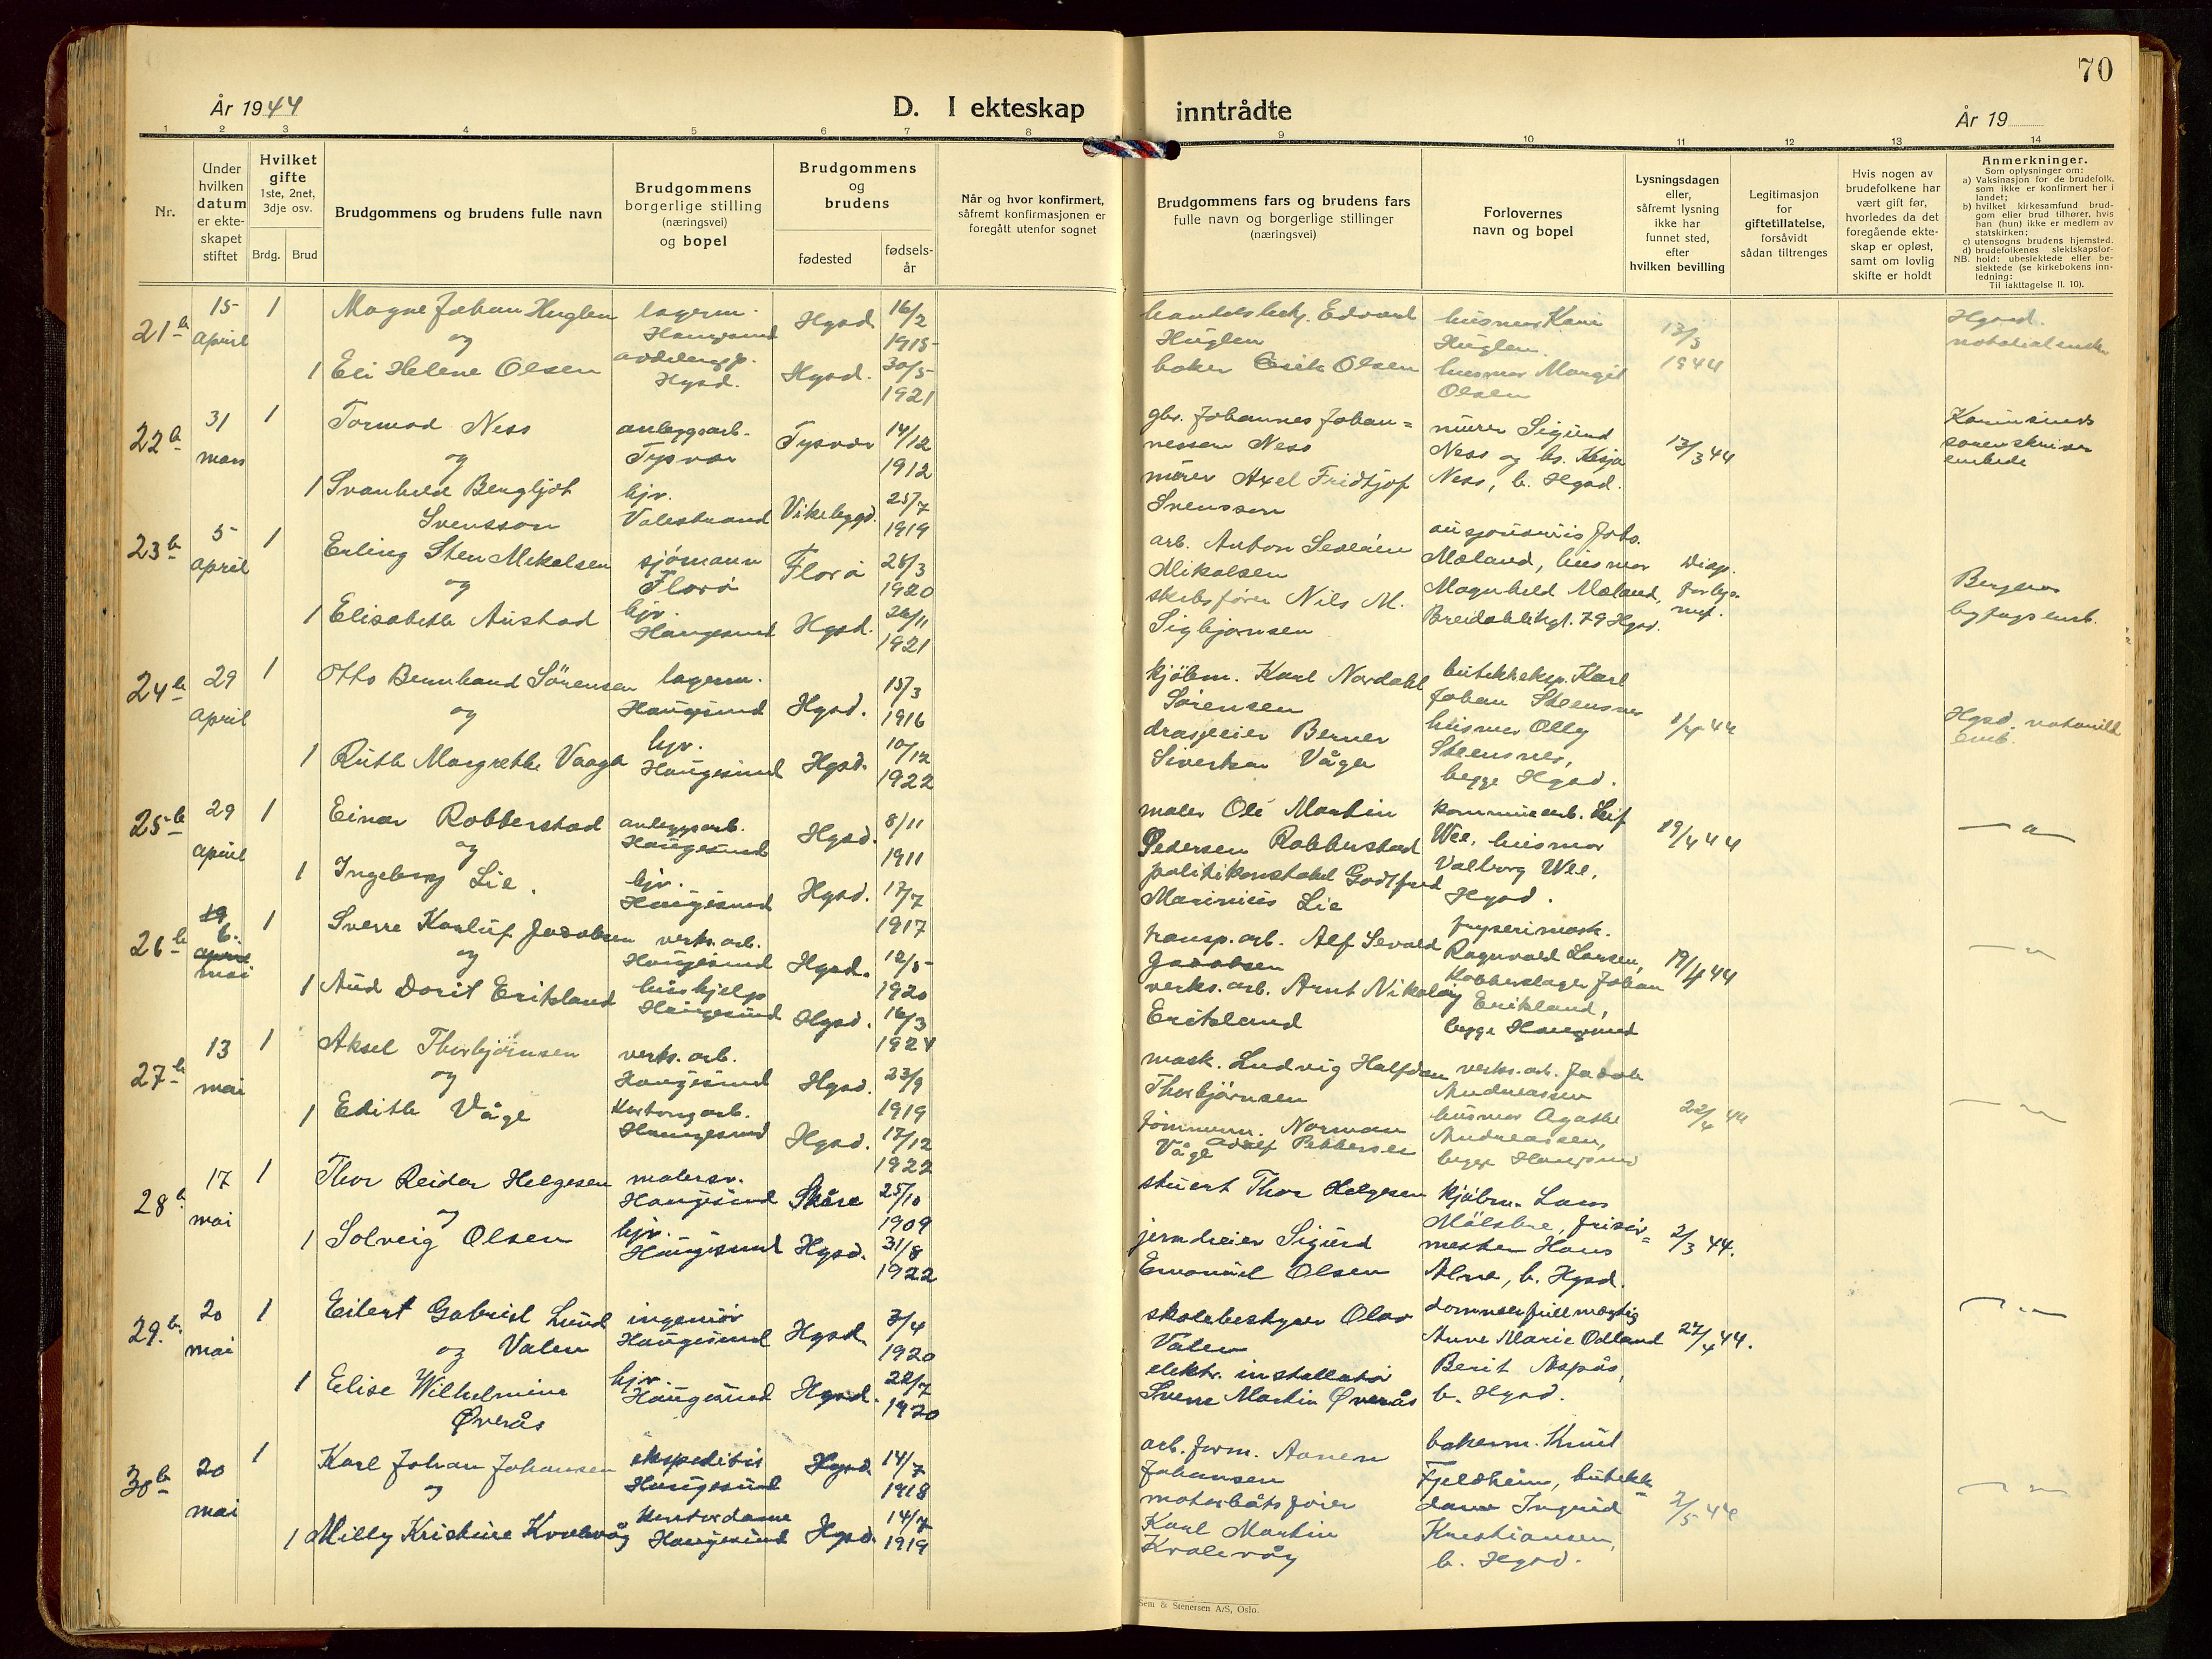 70
År 1944
D. I ekteskap inntrådte
År 19
1 2 3 4 5 6 7 8 9 10 11 12 13 14
Nr.
Under
hvilken
datum
er ekte-
skapet
stiftet
Hvilket
gifte
1ste, 2net,
3dje osv.
Brdg. Brud
Brudgommens og brudens fulle navn
Brudgommens
borgerlige stilling
(næringsvei)
og bopel
Brudgommens
og
brudens
fødested
fødsels-
år
Når og hvor konfirmert,
såfremt konfirmasjonen er
foregått utenfor sognet
Brudgommens fars og brudens fars
fulle navn og borgerlige stillinger
(næringsvei)
Forlovernes
navn og bopel
Lysningsdagen
eller,
såfremt lysning
ikke har
funnet sted,
efter
hvilken bevilling
Legitimasjon
for
giftetillatelse,
forsåvidt
sådan tiltrenges
Hvis nogen av
brudefolkene har
vært gift før,
hvorledes da det
foregående ekte-
skap er opløst,
samt om lovlig
skifte er holdt
Anmerkninger.
Som oplysninger om:
a) Vaksinasjon for de brudefolk.
som ikke er konfirmert her i
landet;
b) hvilket kirkesamfund brud-
gom eller brud tilhører, hvis
han (hun) ikke er medlem av
statskirken;
c) utensogns brudens hjemsted.
d) brudefolkenes slektskapsfor-
NB. hold: ubeslektede eller be-
slektede (se kirkebokens inn-
ledning:
Til iakttagelse II. 10).
21 b
15
april
1
Magne Johan Huglen
og
1 Eli Helene Olsen
lagerm.
Haugesund
Hgsd.
Hgsd. 16/2
1915
Hgsd. 30/5
1921
Edvard
Huglen
baker Erik Olsen
husmor Kari
Huglen
husmor Margit
Olsen
13/3
1944
Hgsd.
22 b
31
mars
1
Tormod Ness
og
1 Svanhild Bergljot
Svensson
anleggsarb.
Tysvær
hjv.
Valestrand
Tysvær 14/12
1912
Vikebygd. 25/7
1919
gbr. Johannes Johan=
nessen Ness
murer Axel Fridtjof
Svensson
murer Sigurd
Ness og hs. Kasja
Ness, b. Hgsd.
13/3 44
Karmsunds
sorenskriver
embede
23 b
5
april
1
Erling Sten Mikalsen
og
1 Elisabeth Austad
sjömann
Florö
hjv.
Haugesund
Florö 28/3
1920
Hgsd. 26/11
1921
arb. Anton
Mikalsen
skibsförer Nils M.
Sigbjørnsen
Mæland, husmor
Magnhild Mæland,
79 Hgsd.
Disp.
Bergens
byfogd emb.
24 b
29
april
1
Otto Bernhard Sörensen
og
1 Ruth Margrethe Vaage
lagerm.
Haugesund
hjv.
Haugesund
Hgsd. 15/3
1916
Hgsd. 10/12
1922
kjöbm. Karl Nordahl
Sörensen
drosjeeier Berner
Våge
butikkeksp. Karl
Johan Steensnes
husmor Olly
Steensnes,
begge Hgsd.
1/4 44
Hgsd.
emb.
25 b
29
april
1
Einar Robberstad
og
1 Ingeborg Lie.
anleggsarb.
Haugesund
hjv.
Haugesund
Hgsd. 8/11
1911
Hgsd. 17/7
1917
maler Ole Martin
Pedersen Robberstad
politikonstabel Godtfred
Marinius Lie
kommunearb. Leif
Wee, husmor
Valborg Wee,
Hgsd.
19/4 44
— " —
26 b
19
6.
april
mai
1
Sverre Karluf Jacobsen
og
1 Aud Dorit Eritsland
verks. arb.
Haugesund
hushjelp
Haugesund
Hgsd. 12/5
1920
Hgsd. 16/3
1924
transp. arb. Alf Sevald
Jacobsen
verks. arb. Arnt Nikolay
Eritsland
fryserimask.
Ragnvald Larsen,
kobberslager Johan
Eritsland,
begge Haugesund
19/4 44
— " —
27 b
13
mai
1
Aksel Thorbjörnsen
og
1 Edith Våge
verks. arb.
Haugesund
Kartongarb.
Haugesund
Hgsd. 23/9
1919
Hgsd. 17/12
1922
mask. Ludvig Halfdan
Thorbjörnsen
tömmerm. Norman
Våge Adolf Pettersen
verks. arb. Jacob
Andreassen
husmor Agathe
Andreassen,
begge Haugesund
22/4 44
— " —
28 b
17
mai
1
Thor Reidar Helgesen
og
1 Solveig Olsen
malersv.
Haugesund
hjv.
Haugesund
Skåre 25/10
1909
Hgsd. 31/8
1922
stuert Thor Helgesen
Sigurd
Emanuel Olsen
kjöbm. Lars
frisör=
mester Hans
Alne, b. Hgsd.
2/3 44.
29 b.
20
mai
1
Eilert Gabriel Lund
og Valen
1 Elise Wilhelmine
Øverås
ingeniör
Haugesund
hjv.
Haugesund
Hgsd. 3/4
1920
Hgsd. 22/7
1920
skolebestyrer Olav
Valen
elektr. installatör
Sverre Martin Øverås
dommerfullmægtig
Anne Marie Odland
Berit Aspås,
b. Hgsd.
27/4 44.
— " —
30 b
20
mai
1
Karl Johan Johansen
og
1 Milly Kristine Kvalevåg
ekspeditör
Haugesund
Kontordame
Haugesund
Hgsd. 14/7
1918
Hgsd. 14/7
1919
arb. form. Aanen
Johansen
motorbåtsförer
Karl Martin
Kvalevåg
bakerm. Knut
Fjeldheim, butikk=
dame Ingrid
Kristiansen,
b. Hgsd.
2/5 44
— " —
Sem & Stenersen A/S, Oslo.